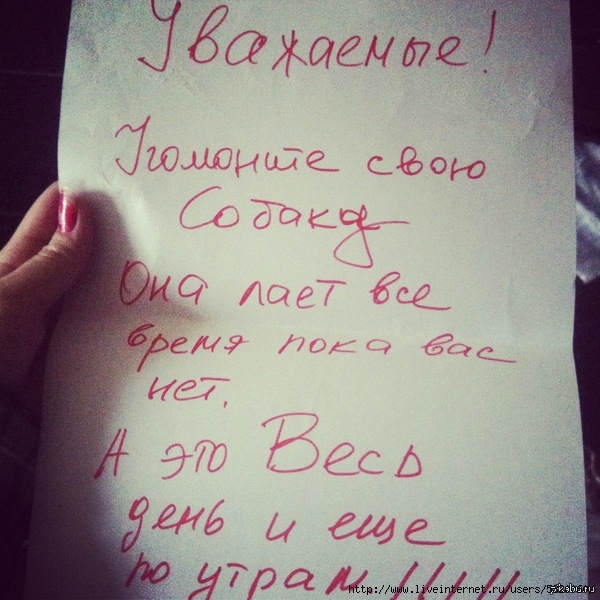 Уважаемые!
Угомоните свою
Собаку
Она лает все
время пока вас
нет.
А это Весь
день и еще
по утрам !!!!!
http://www.liveinternet.ru/users/